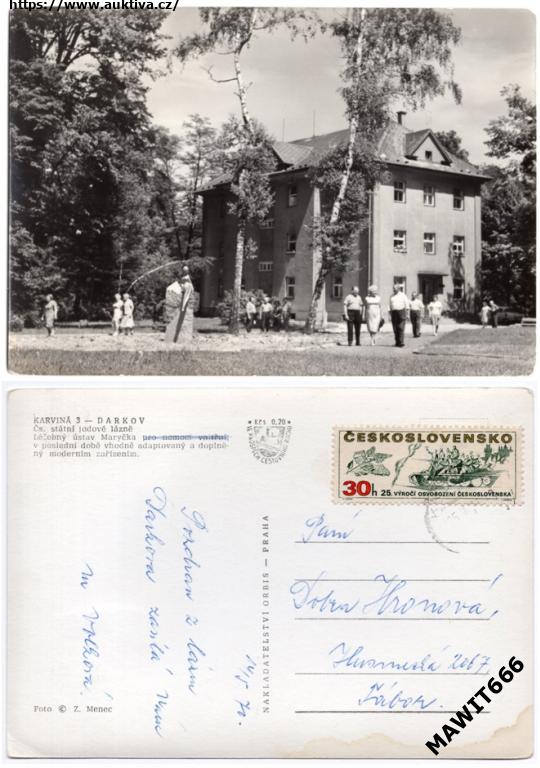 https://www.auktiva.cz/
KARVINÁ 3 — DARKOV
Čs. státní jodové lázně
Léčebný ústav Maryčka pro nemoci vnitřní,
v poslední době vhodně adaptovaný a doplně-
ný moderním zařízením.
Kčs 0,20
ČESKOSLOVENSKO
30h 25. VÝROČÍ OSVOBOZENÍ ČESKOSLOVENSKA
Pozdrav z lázní
Darkova zasílá Vám
14/5 70.
NAKLADATELSTVÍ ORBIS — PRAHA
Paní
Hronová,
Husinecká 2067
Tábor.
Foto © Z. Menec
MAWIT666